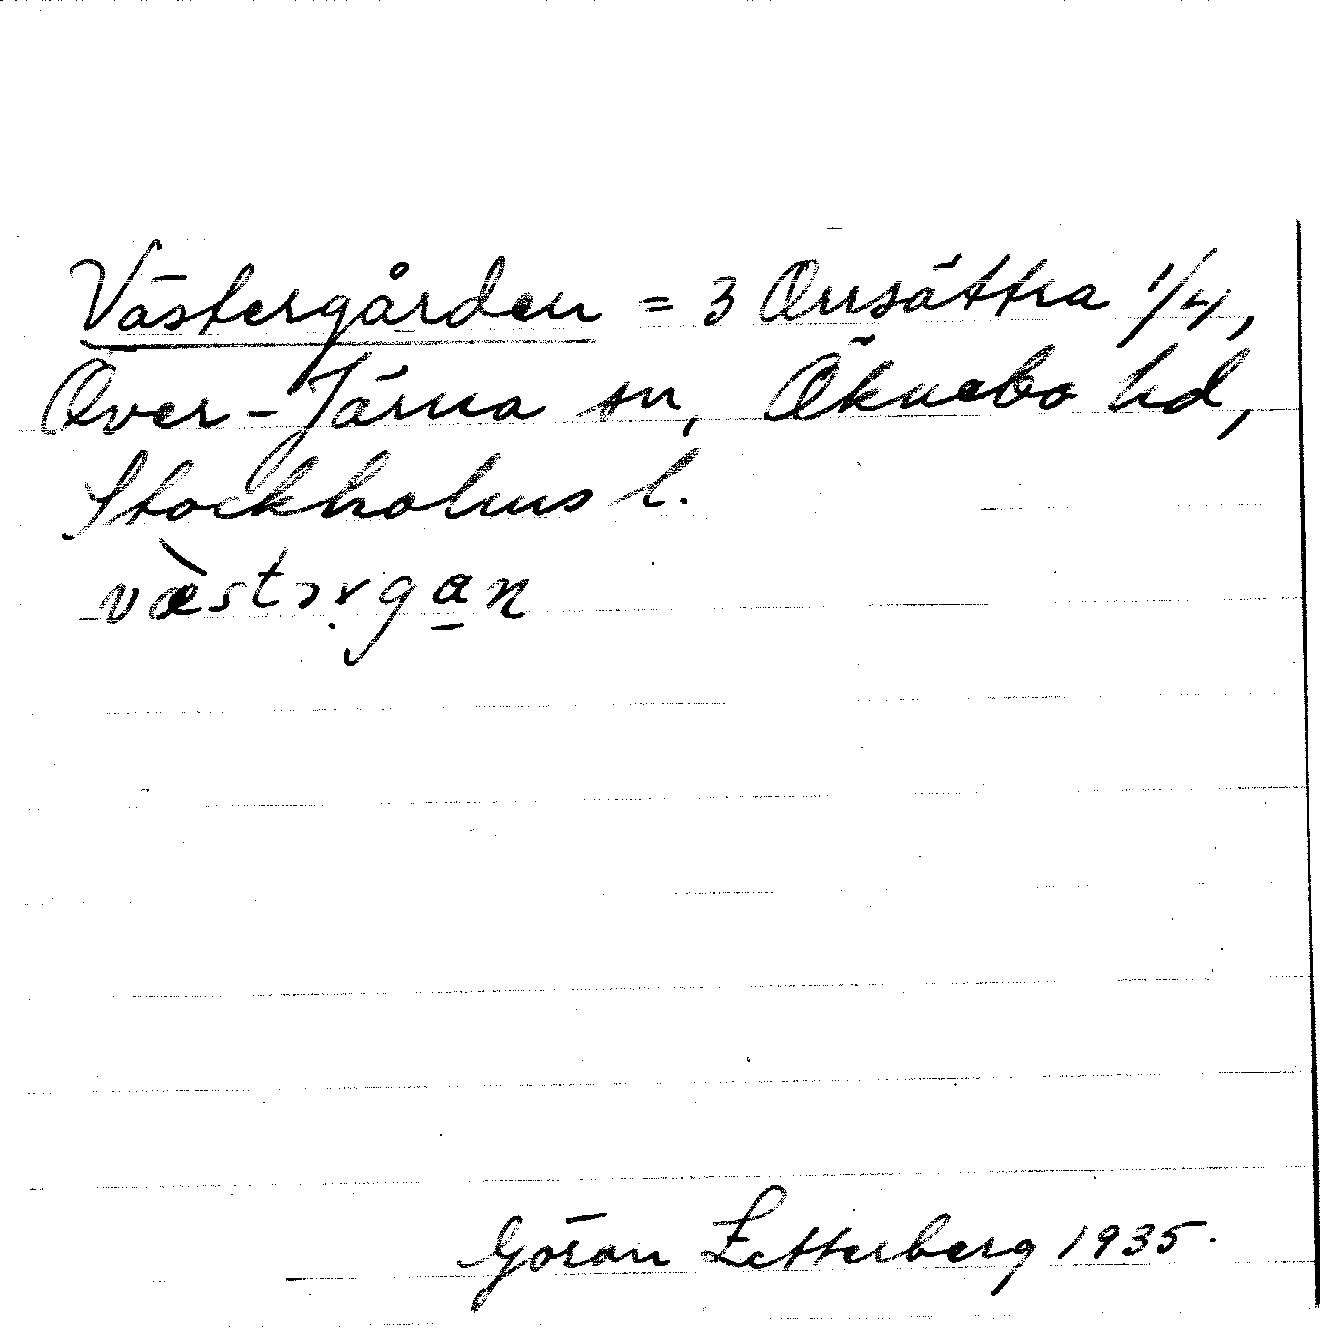 Västergården = 3 Önsättra 1/4,
Över-Järna sn, Öknebo hd,
Stockholms l.
væ̀stərgan
Göran Zetterberg 1935.